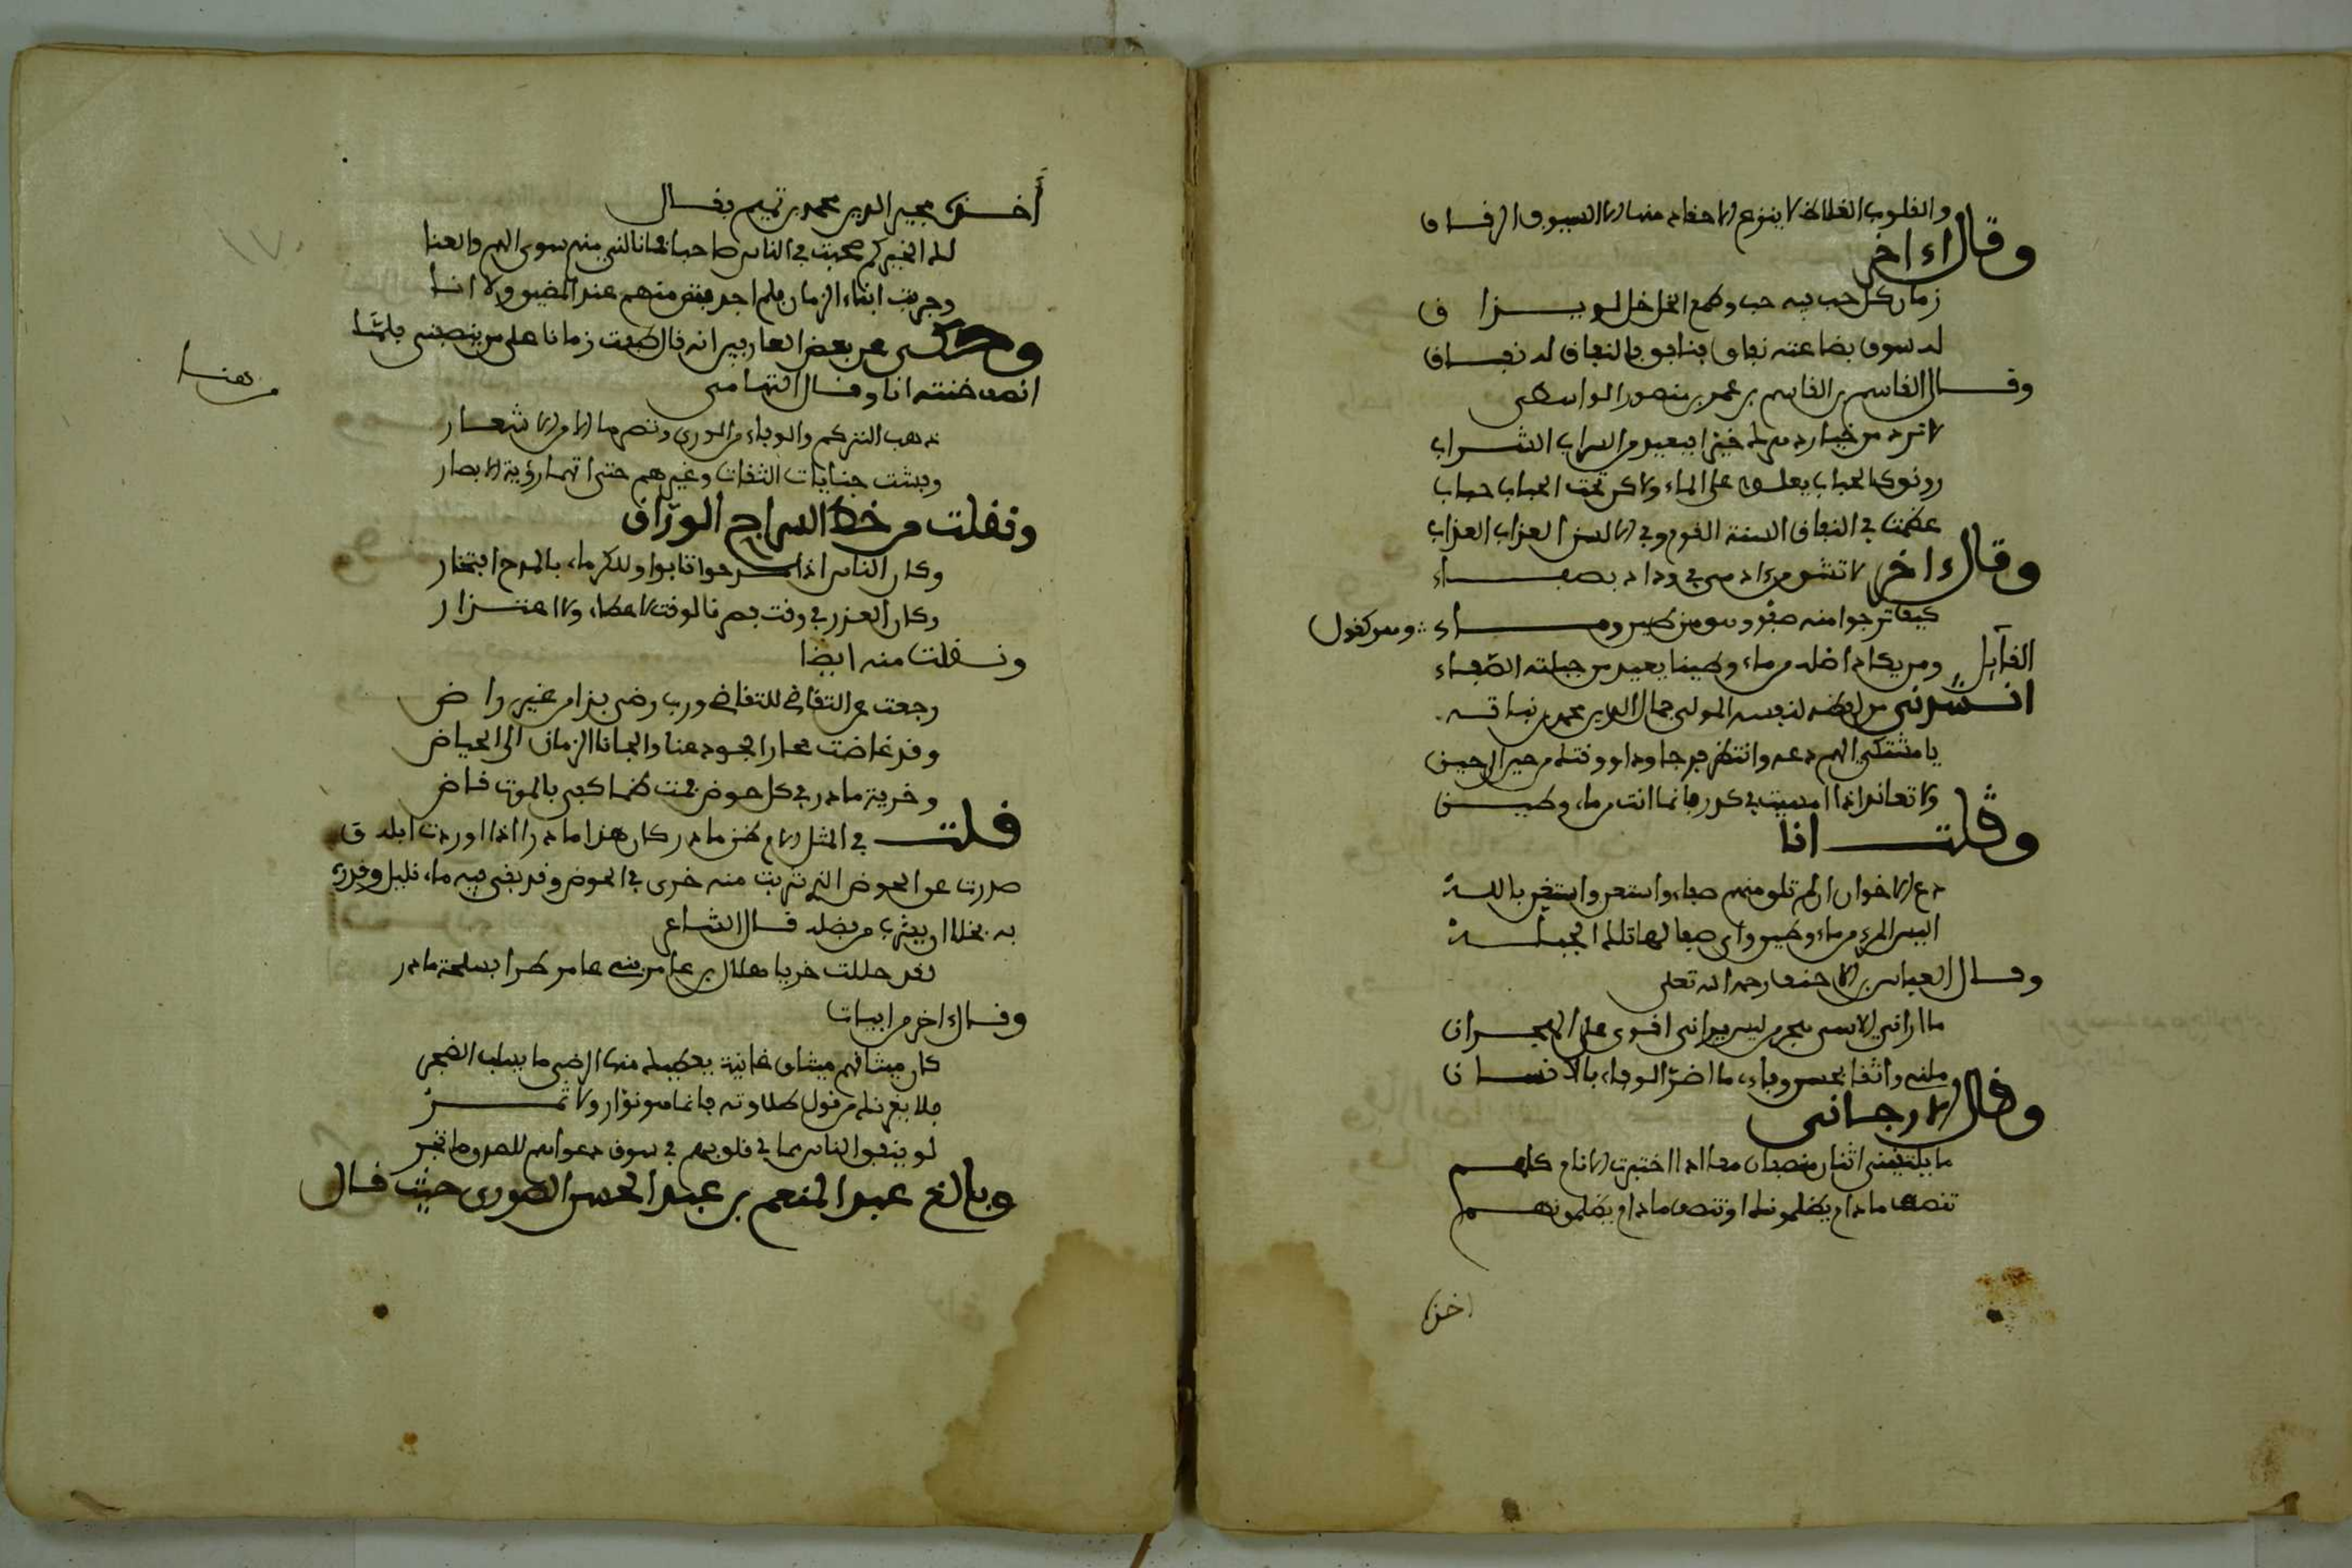 والقلوب الغلاظ لا ينزع الاحقاد منها الا السيوف الرقاق
وقال ءاخر
زمان كل حب فيه خب وطعم الخل خل لو يذاق
له سوق بضاعته نفاق فنافق فالنفاق له نفاق
وقال القاسم بن القاسم بن عمر بن منصور الواسطي
لا ترد من خيار دهرك خيرا فبعيد من السراب الشراب
رونق كالحباب يعلو على الماء ولاكن تحت الحباب حباب
عظمت في النفاق السنة القوم وفي الالسن العذاب العذاب
وقال ءاخر لا تثق من ءادمي في وداد بصفاء
كيف ترجوا منه صفو وهو من طين وماء وهو كقول
القايل ومن يك اصله من ماء وطين بعيد من جبلته الصفاء
انشدني من لفظه لنفسه المولى جمال الدين محمد بن نباتة
يا مشتكي الهم دعه وانتظر فرجا ودار وقتك من حين الى حين
ولا تعاند اذا امسيت في كدر فانما انت من ماء وطين
وقلت انا
دع الاخوان ان لم تلق منهم صفاء واستعن واستغن بالله
اليس المرء من ماء وطين واي صفا لهاتلك الجبلة
وقال العباس بن الاحنف رحمه الله تعلى
ما اراني الا سهجر من ليس يراني اقوى على الهجران
ملني واثقا بحسن وفاءي ما اضر الوفاء بالانسان
وقال الارجاني
ما يلتقي اثنان منصفان معا اذا اختبرت الانام كلهم
تنصف ما دام يظلمونك او تنصف ما دام يظلمونهم
اخذ
أخذه مجير الدين محمد بن تميم فقال
لك الخير كم صحبت في الناس صاحبا فما نالني منه سوى الهم والعنا
وجربت ابناء الزمان فلم اجد فتى منهم عند المضيق ولا انا
وحكي عن بعض العارفين انه قال طفت زمانا على من ينصفني فلمّا
انصف خنته انا وقال التهامي
من هنا
ذهب التكرم والوفاء من الورى وتصرما الا من الاشعار
وفشت جنايات الثقات وغيرهم حتى اتهمنا رؤية الابصار
ونقلت من خط السراج الورّاق
وكان الناس اذا مدحوا اثابوا وللكرماء بالمدح افتخار
وكان العذر في وقت فصرنا لوقت لا عطاء ولا اعتذار
ونقلت منه ايضا
رجعت عن التقاضي للتغاضي ورب رضى بذا من غير راض
وقد غاضت بحار الجود عنا والجانا الزمان الى الحياض
وخرية مادر في كل حوض فمت ظما كفى بالموت قاض
قلت في المثل الام من مادر كان هذا مادرا اذا اوردت ابله ق
صدرت عن الحوض الذي شربت منه خرى في الحوض وقد بقي فيه ماء قليل وقدره
به بخلا ان يشرب من فضله قال الشاعر
لقد جللت خزيا هلال بن عامر بني عامر طرا بسلحة مادر
وقال ءاخر من ابيات
كان ميثاقهم ميثاق غانية يعطيك منها الرضى ما يسلب الضجر
فلا يغرنك من قول طلاوته فانما هو نوار ولا ثمر
لو ينفق الناس مما في قلوبهم في سوق دعواهم للصدق ما تجر
وبالغ عبد المنعم بن عبد المحسن الصوري حيث قال